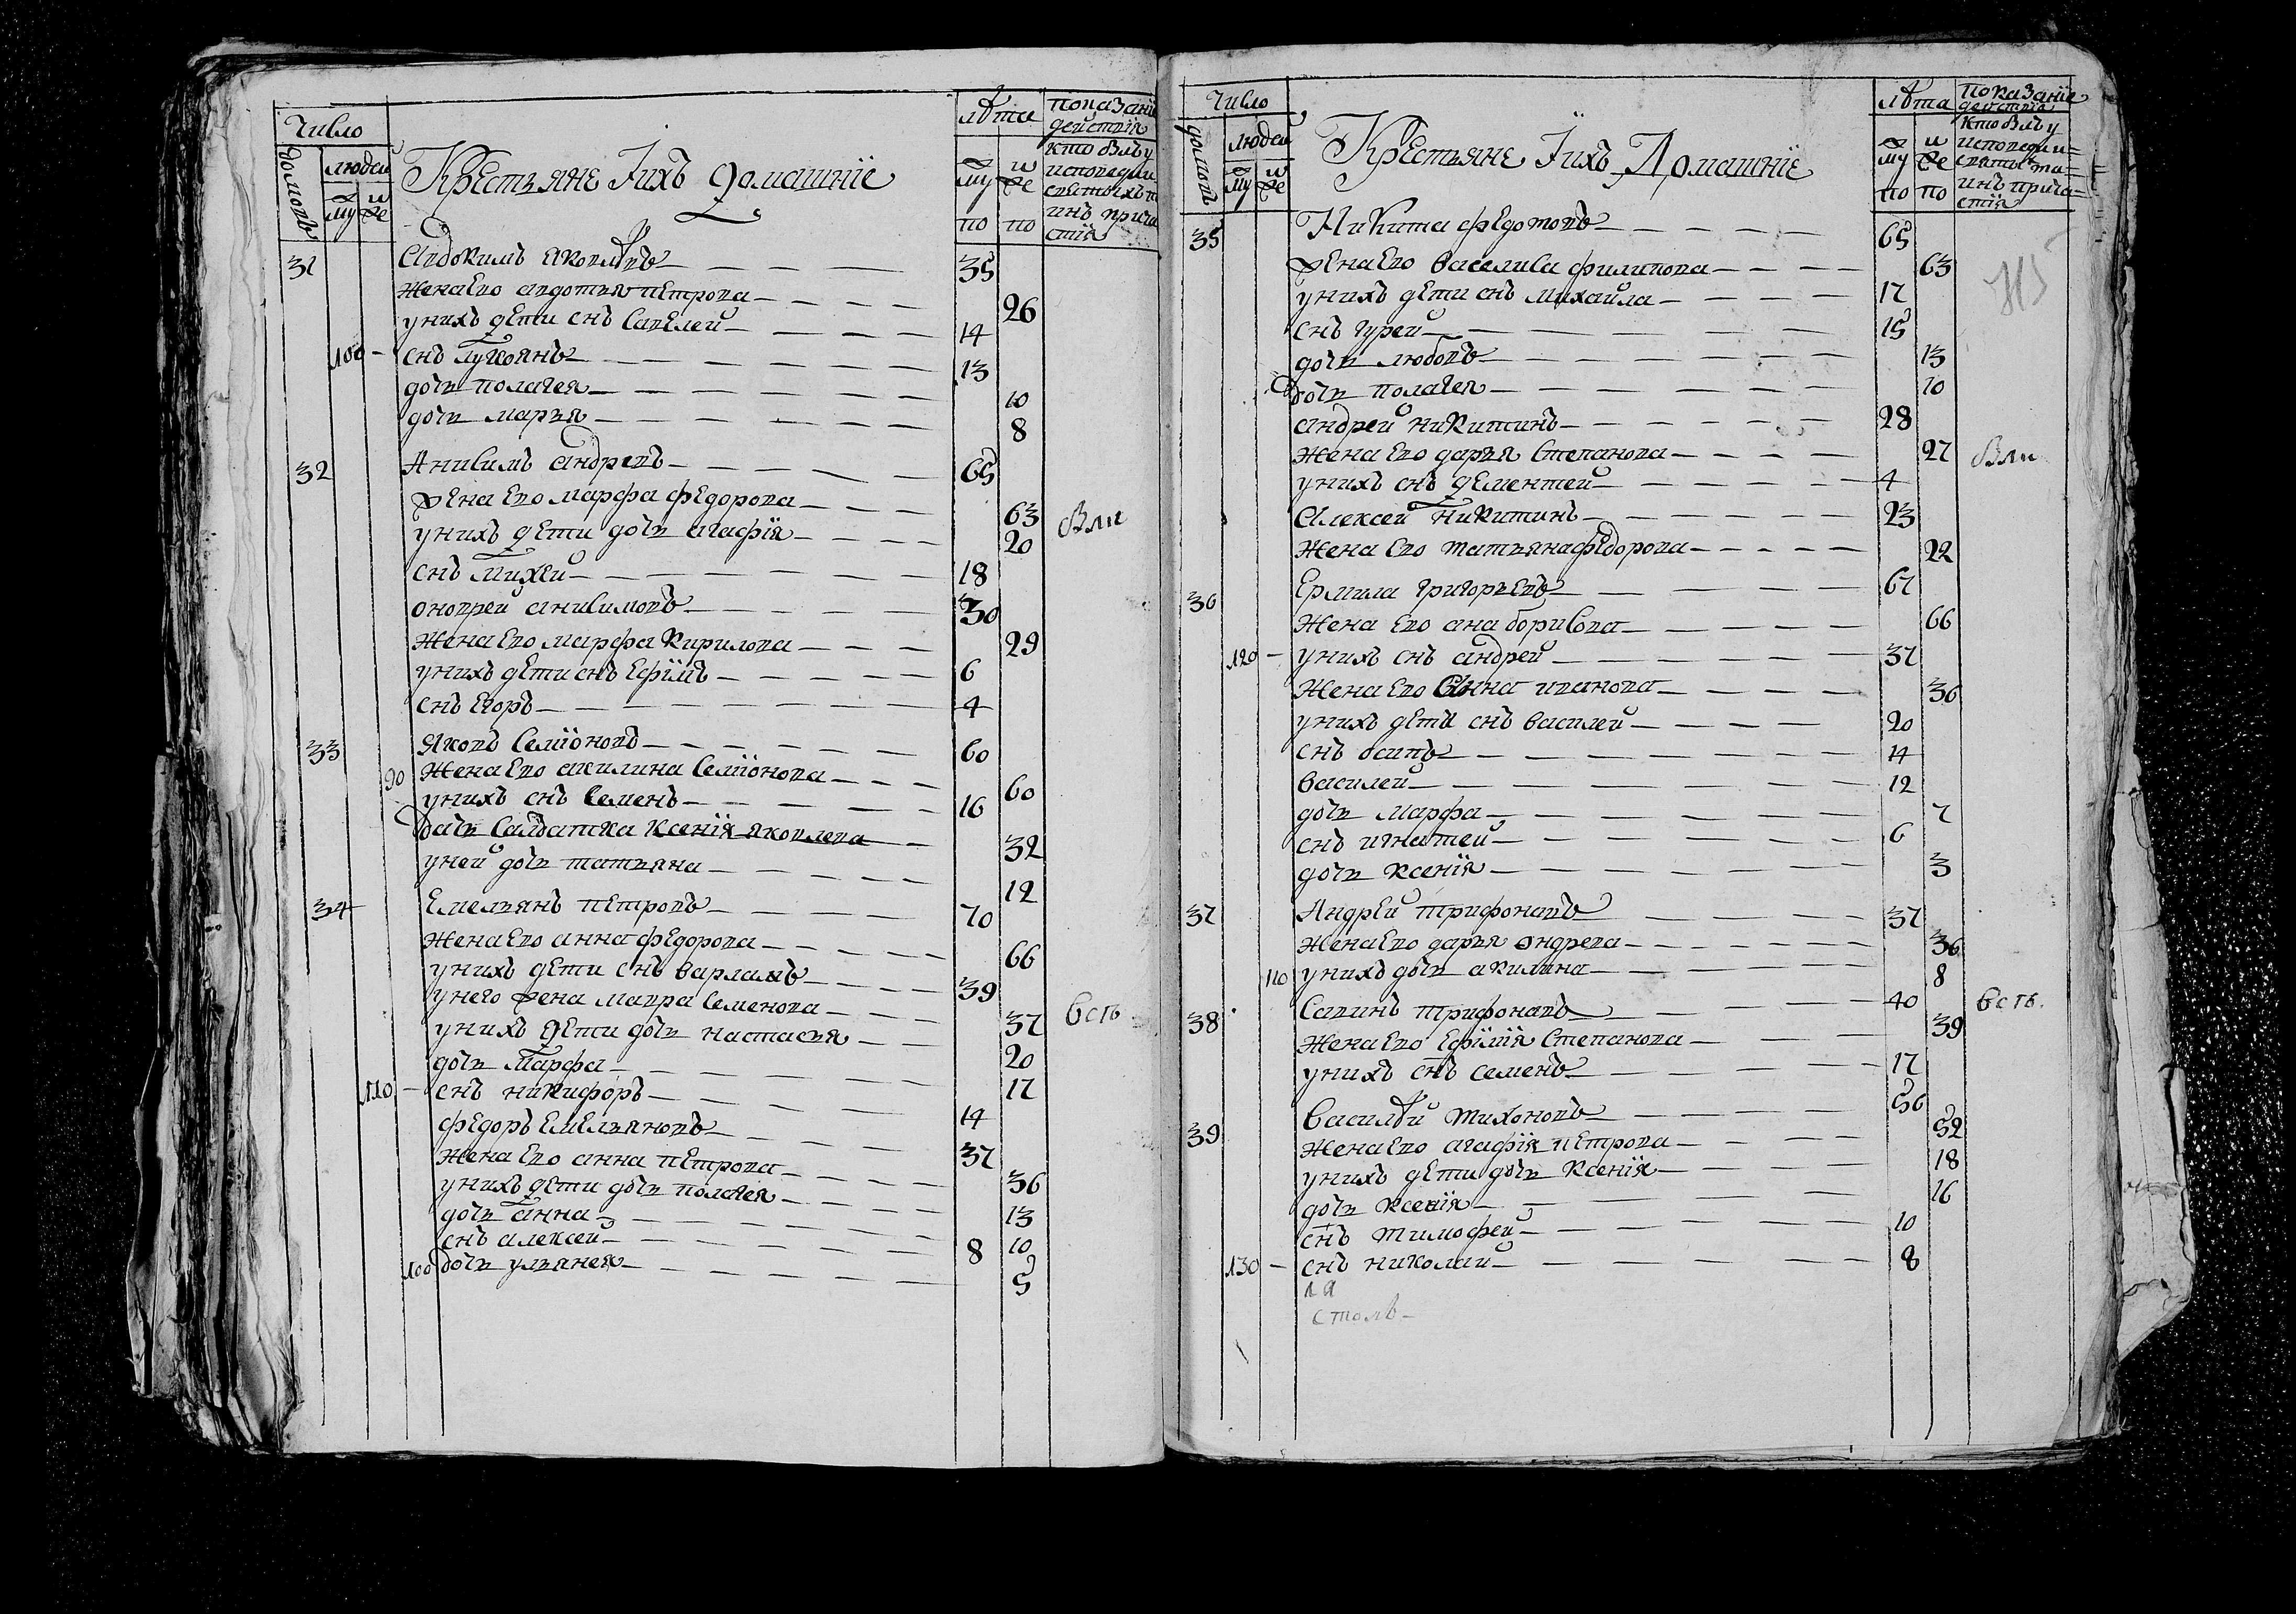 Число
лѣта
показание
действїя
домовъ
людей
му же
Крестьяне Iихъ домашнїе
му же
по по
кто былъ у
исповеди и
светыхъ та
инъ прича
стїя
31 Авдокимъ Яковлѣвъ 35
жена ево авдотья петрова 26
унихъ дети снъ Савелей 14
100 снъ Лукоянъ 13
дочь полагея 10
дочь марья 8
32 Анисимъ андревъ 65
жена ево марфа федорова 63 были
унихъ дети дочь агафїя 20
снъ Михей 18
оноврей анисимовъ 30
жена ево марфа Кирилова 29
унихъ дети снъ Ефїмъ 6
снъ Егоръ 4
33 Яковъ Семїоновъ 60
90 жена ево акилина Семїонова 60
унихъ снъ Семенъ 16
дочь Салдатка Ксенїя яковлева 32
уней дочь татьяна 12
34 Емельянъ петровъ 70
жена ево анна федорова 66
унихъ дети снъ варламъ 39
унего жена мавра Семенова 37
унихъ дети дочь настасья 20
дочь Марфа 17
110 снъ никифоръ 14
федоръ Емельяновъ 37
жена ево анна петрова 36
унихъ дети дочь полагея 13
дочь анна 10
снъ алексей 8
100 дочь ульянея 5
Число
лѣта
показанїе
действїя
домовъ
людей
му же
Крестьяне Iихъ Домашнїе
му же
по по
кто былъ у
исповеди и
святы та
инъ прича
стїя
35 Никита федотовъ 65
жена ево васелиса филипова 63
унихъ дети снъ михайла 17
снъ гурей 15
дочь любовъ 13
дочь полагея 10
андрей никитинъ 28
жена ево дарья Степанова 27 были
унихъ снъ дементей 4
Алексей Никитинъ 23
жена ево татьяна федорова 22
36 Ермила григорьевъ 67
жена ево ана борисова 66
120 унихъ снъ андрей 37
жена ево Анна иванова 36
унихъ дети снъ василей 20
снъ осипъ 14
василей 12
дочь марфа 7
снъ игнатей 6
дочь ксенїя 3
37 Андрей трифоновъ 37
жена ево дарья ондрева 36
110 унихъ дочь акилина 8
38 Савинъ трифоновъ 40
жена ево Ефїмїя Степанова 39
унихъ снъ семенъ 17
39 Василѣй тихоновъ 56
жена ево агафїя петрова 52
унихъ дети дочь Ксенїя 18
дочь ксенїя 16
снъ тимофей 10
130 снъ николай 8